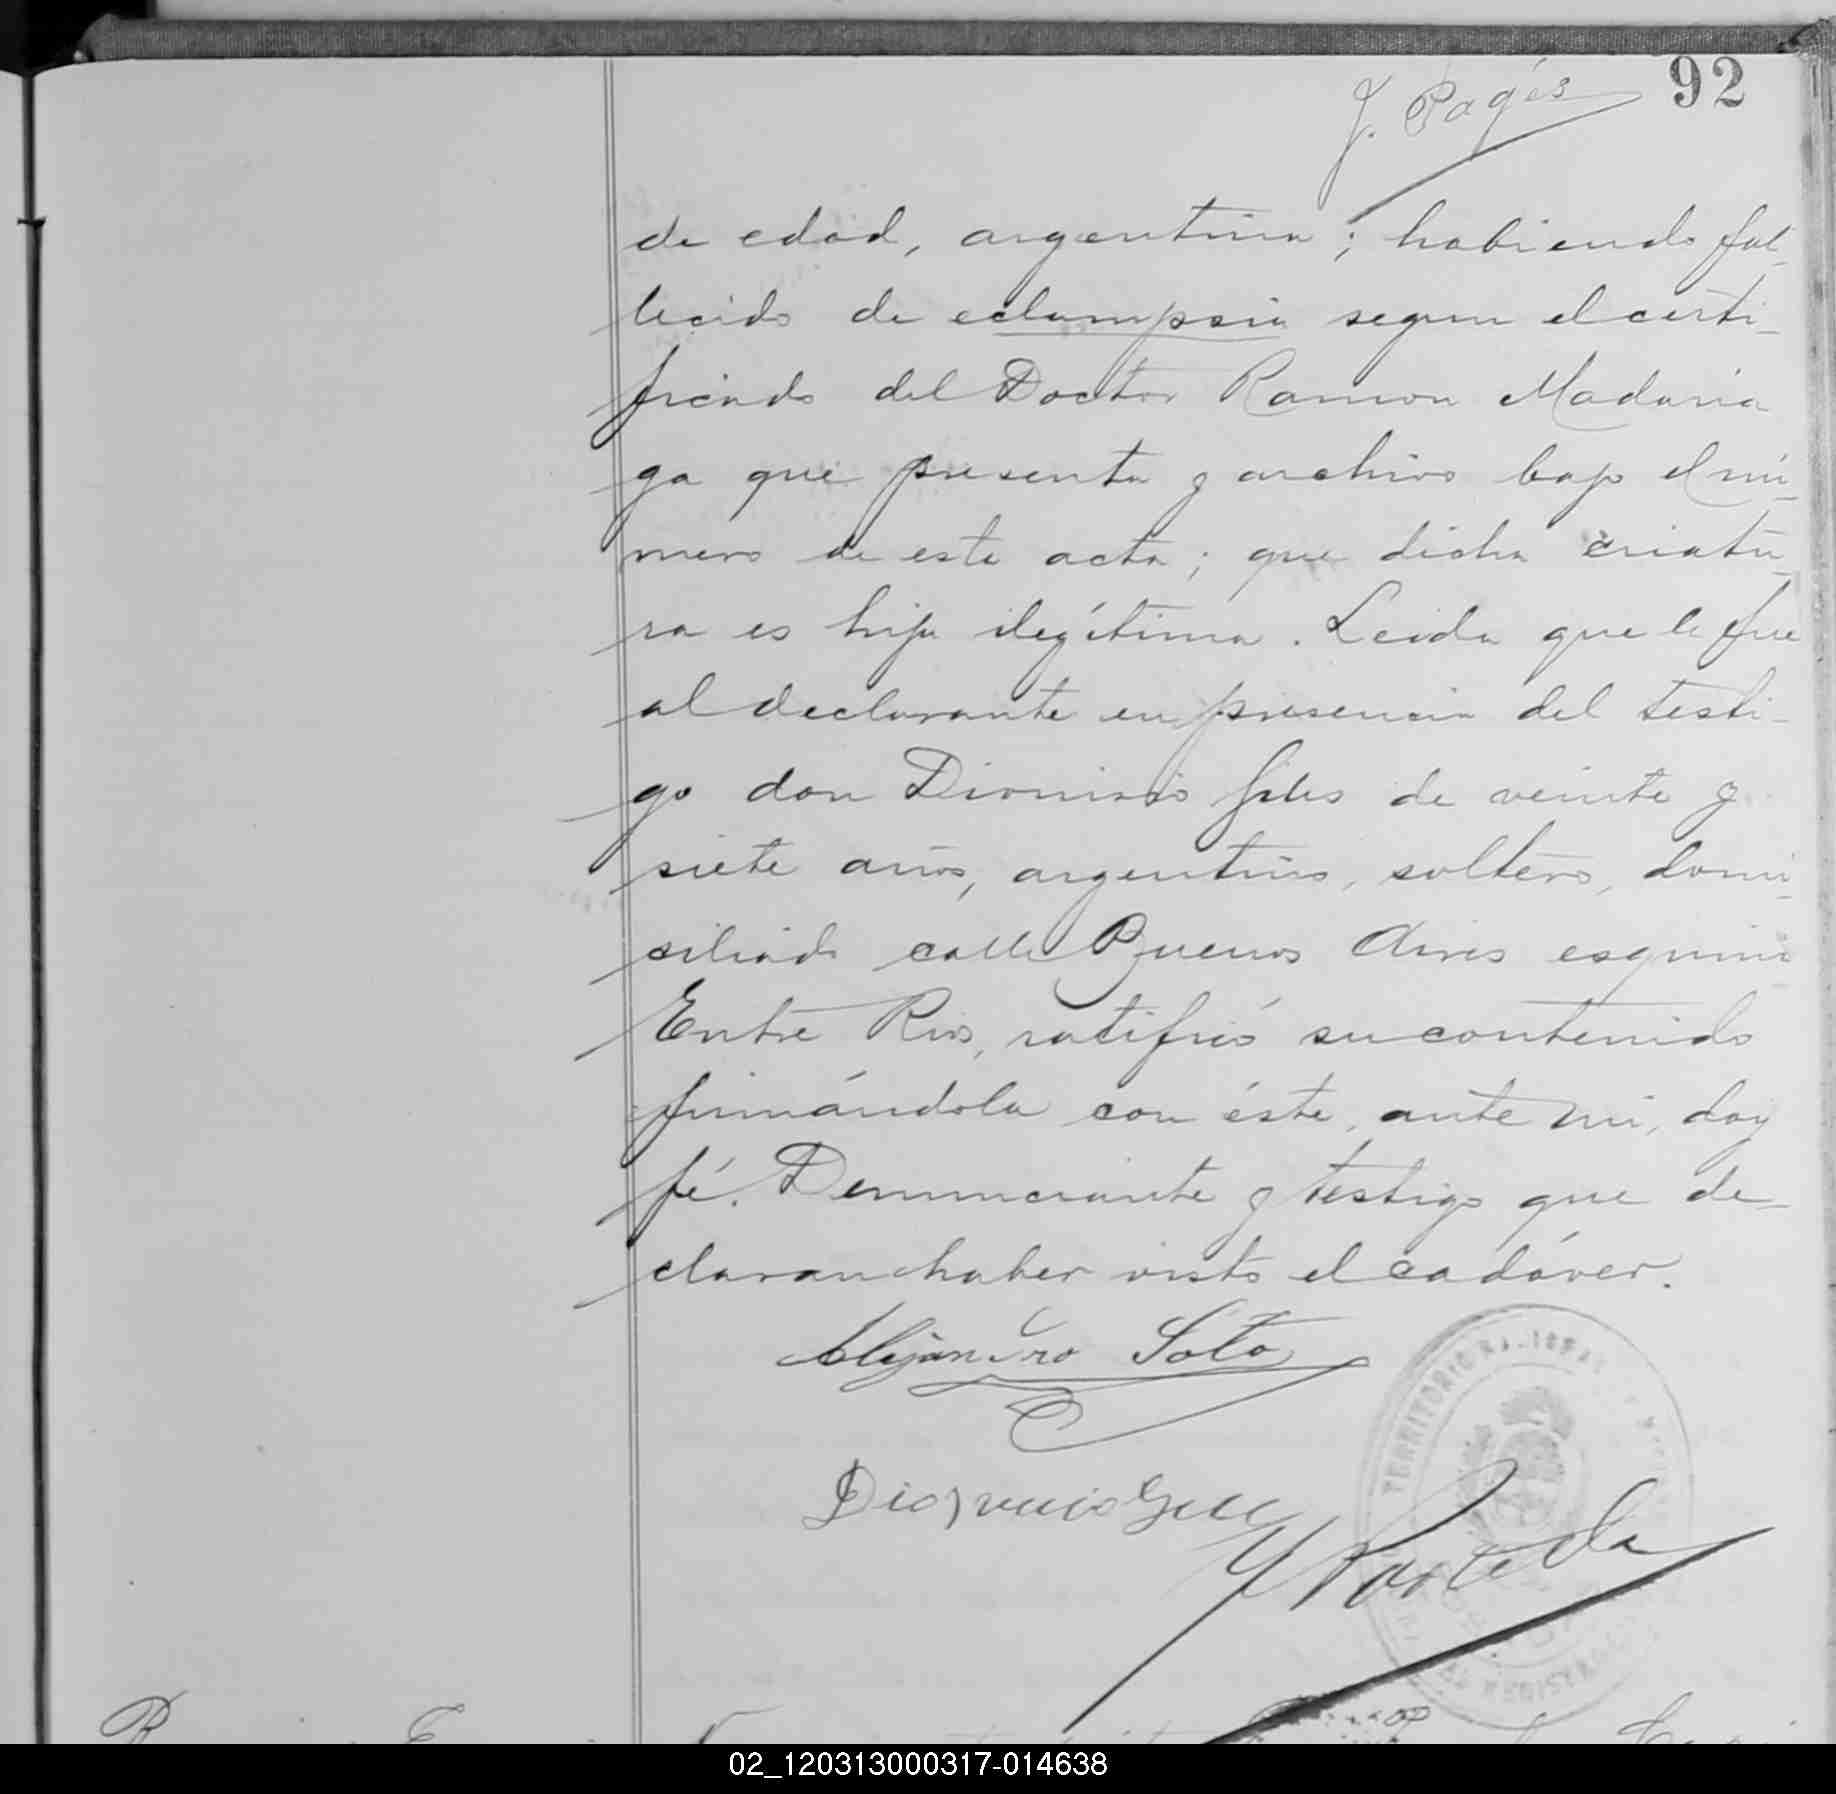 J. Pagés
92
de edad, argentina; habiendo fal-
lecido de eclampsia segun el certi-
ficado del Doctor Ramon Madaria
ga que presenta y archivo bajo el nú-
mero de este acta; que dicha criatu-
ra es hija ilegítima. Leida que le fue
al declarante en presencia del testi-
go don Dionisio de veinte y
siete años, argentino, soltero, domi-
siliado calle Buenos Aires esquina
Entre Rios, ratificó su contenido
firmándola con éste, ante mi, doy
fé. Denunciante y testigo que de-
claran haber visto el cadáver.
Alejandro Soto
TERRITORIO
02_120313000317-014638